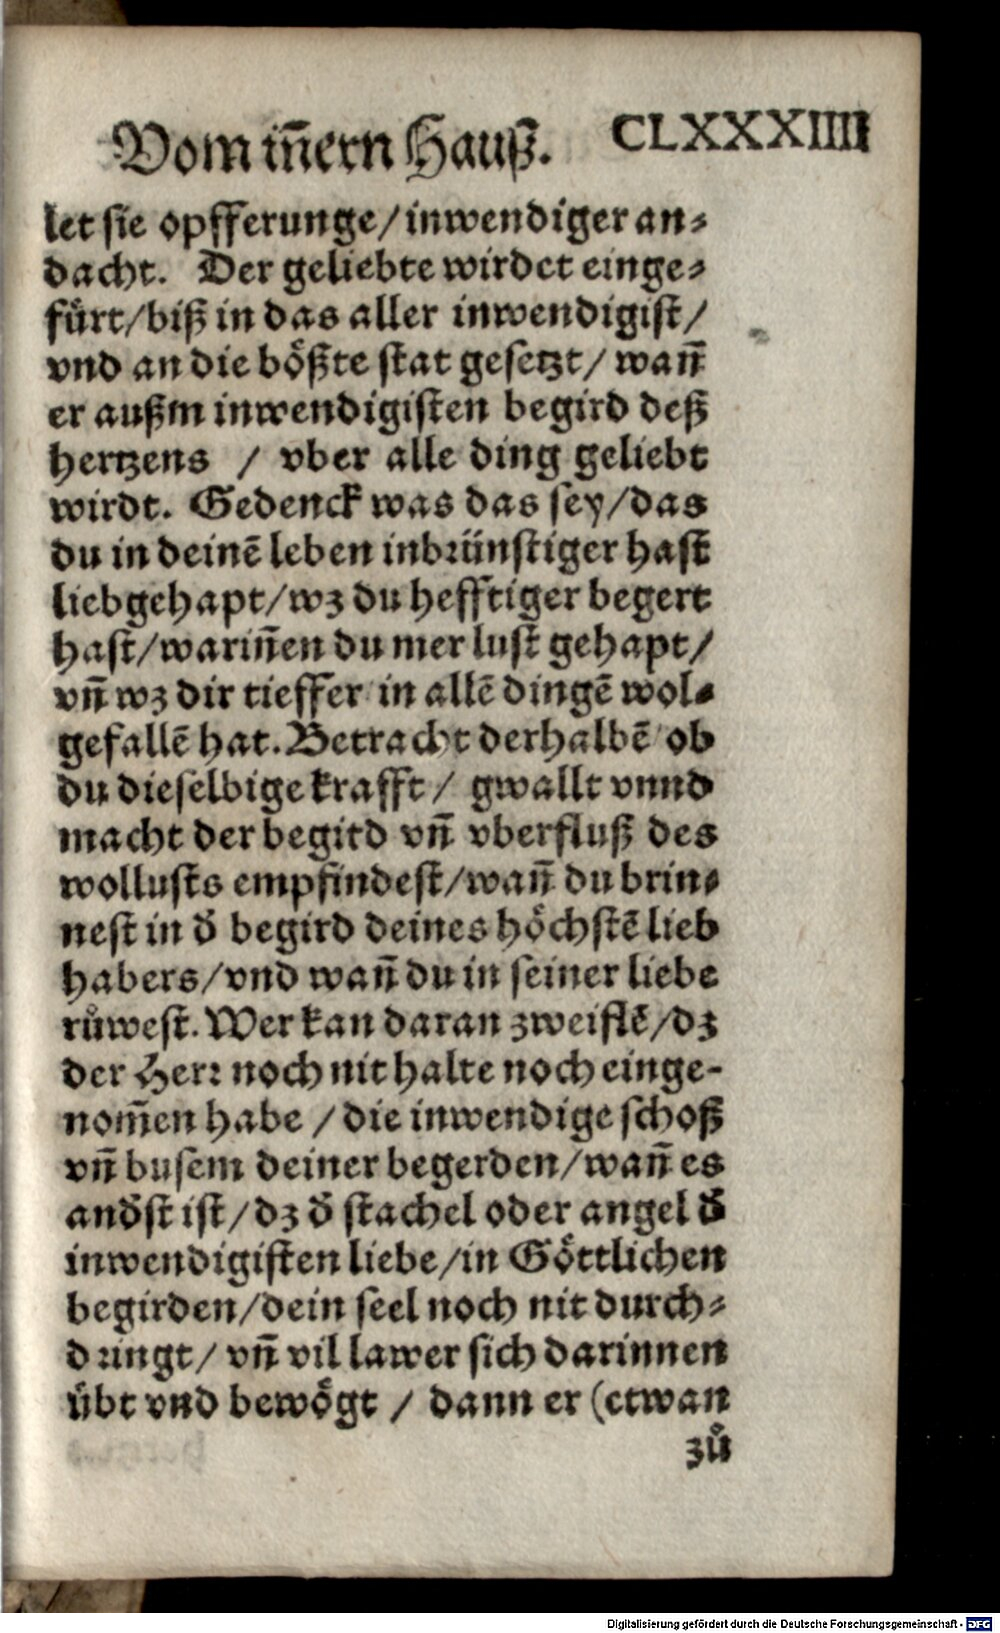 Vom iñern Hauß. CLXXXIIII
let sie opfferunge/inwendiger an⸗
dacht. Der geliebte wirdet einge⸗
fuͤrt/biß in das aller inwendigist/
vnd an die boͤßte stat gesetzt/ wañ
er außm inwendigisten begird deß
hertzens / vber alle ding geliebt
wirdt. Gedenck was das sey/das
du in deinē leben inbrünstiger hast
lieb gehapt/wz du hefftiger begert
hast/wariñen du mer lust gehapt/
vñ wz dir tieffer in allē dingē wol⸗
gefallē hat. Betracht derhalbē ob
du dieselbige krafft/ gwallt vnnd
macht der begird vñ vberfluß des
wollusts empfindest/wañ du brin⸗
nest in d̄ begird deines hoͤchstē lieb
habers/vnd wañ du in seiner liebe
ruͦwest. Wer kan daran zweiflē/dz
der Herr noch nit halte noch einge-
nom̄en habe /die inwendige schoß
vñ busem deiner begerden/wañ es
and̄st ist/dz d̄ stachel oder angel d̄
inwendigisten liebe/in Goͤttlichen
begirden/dein seel noch nit durch⸗
dringt/ vñ vil lawer sich darinnen
uͤbt vnd bewoͤgt / dann er (etwan
zuͦ
Digitalisierung gefördert durch die Deutsche Forschungsgemeinschaft - DFG